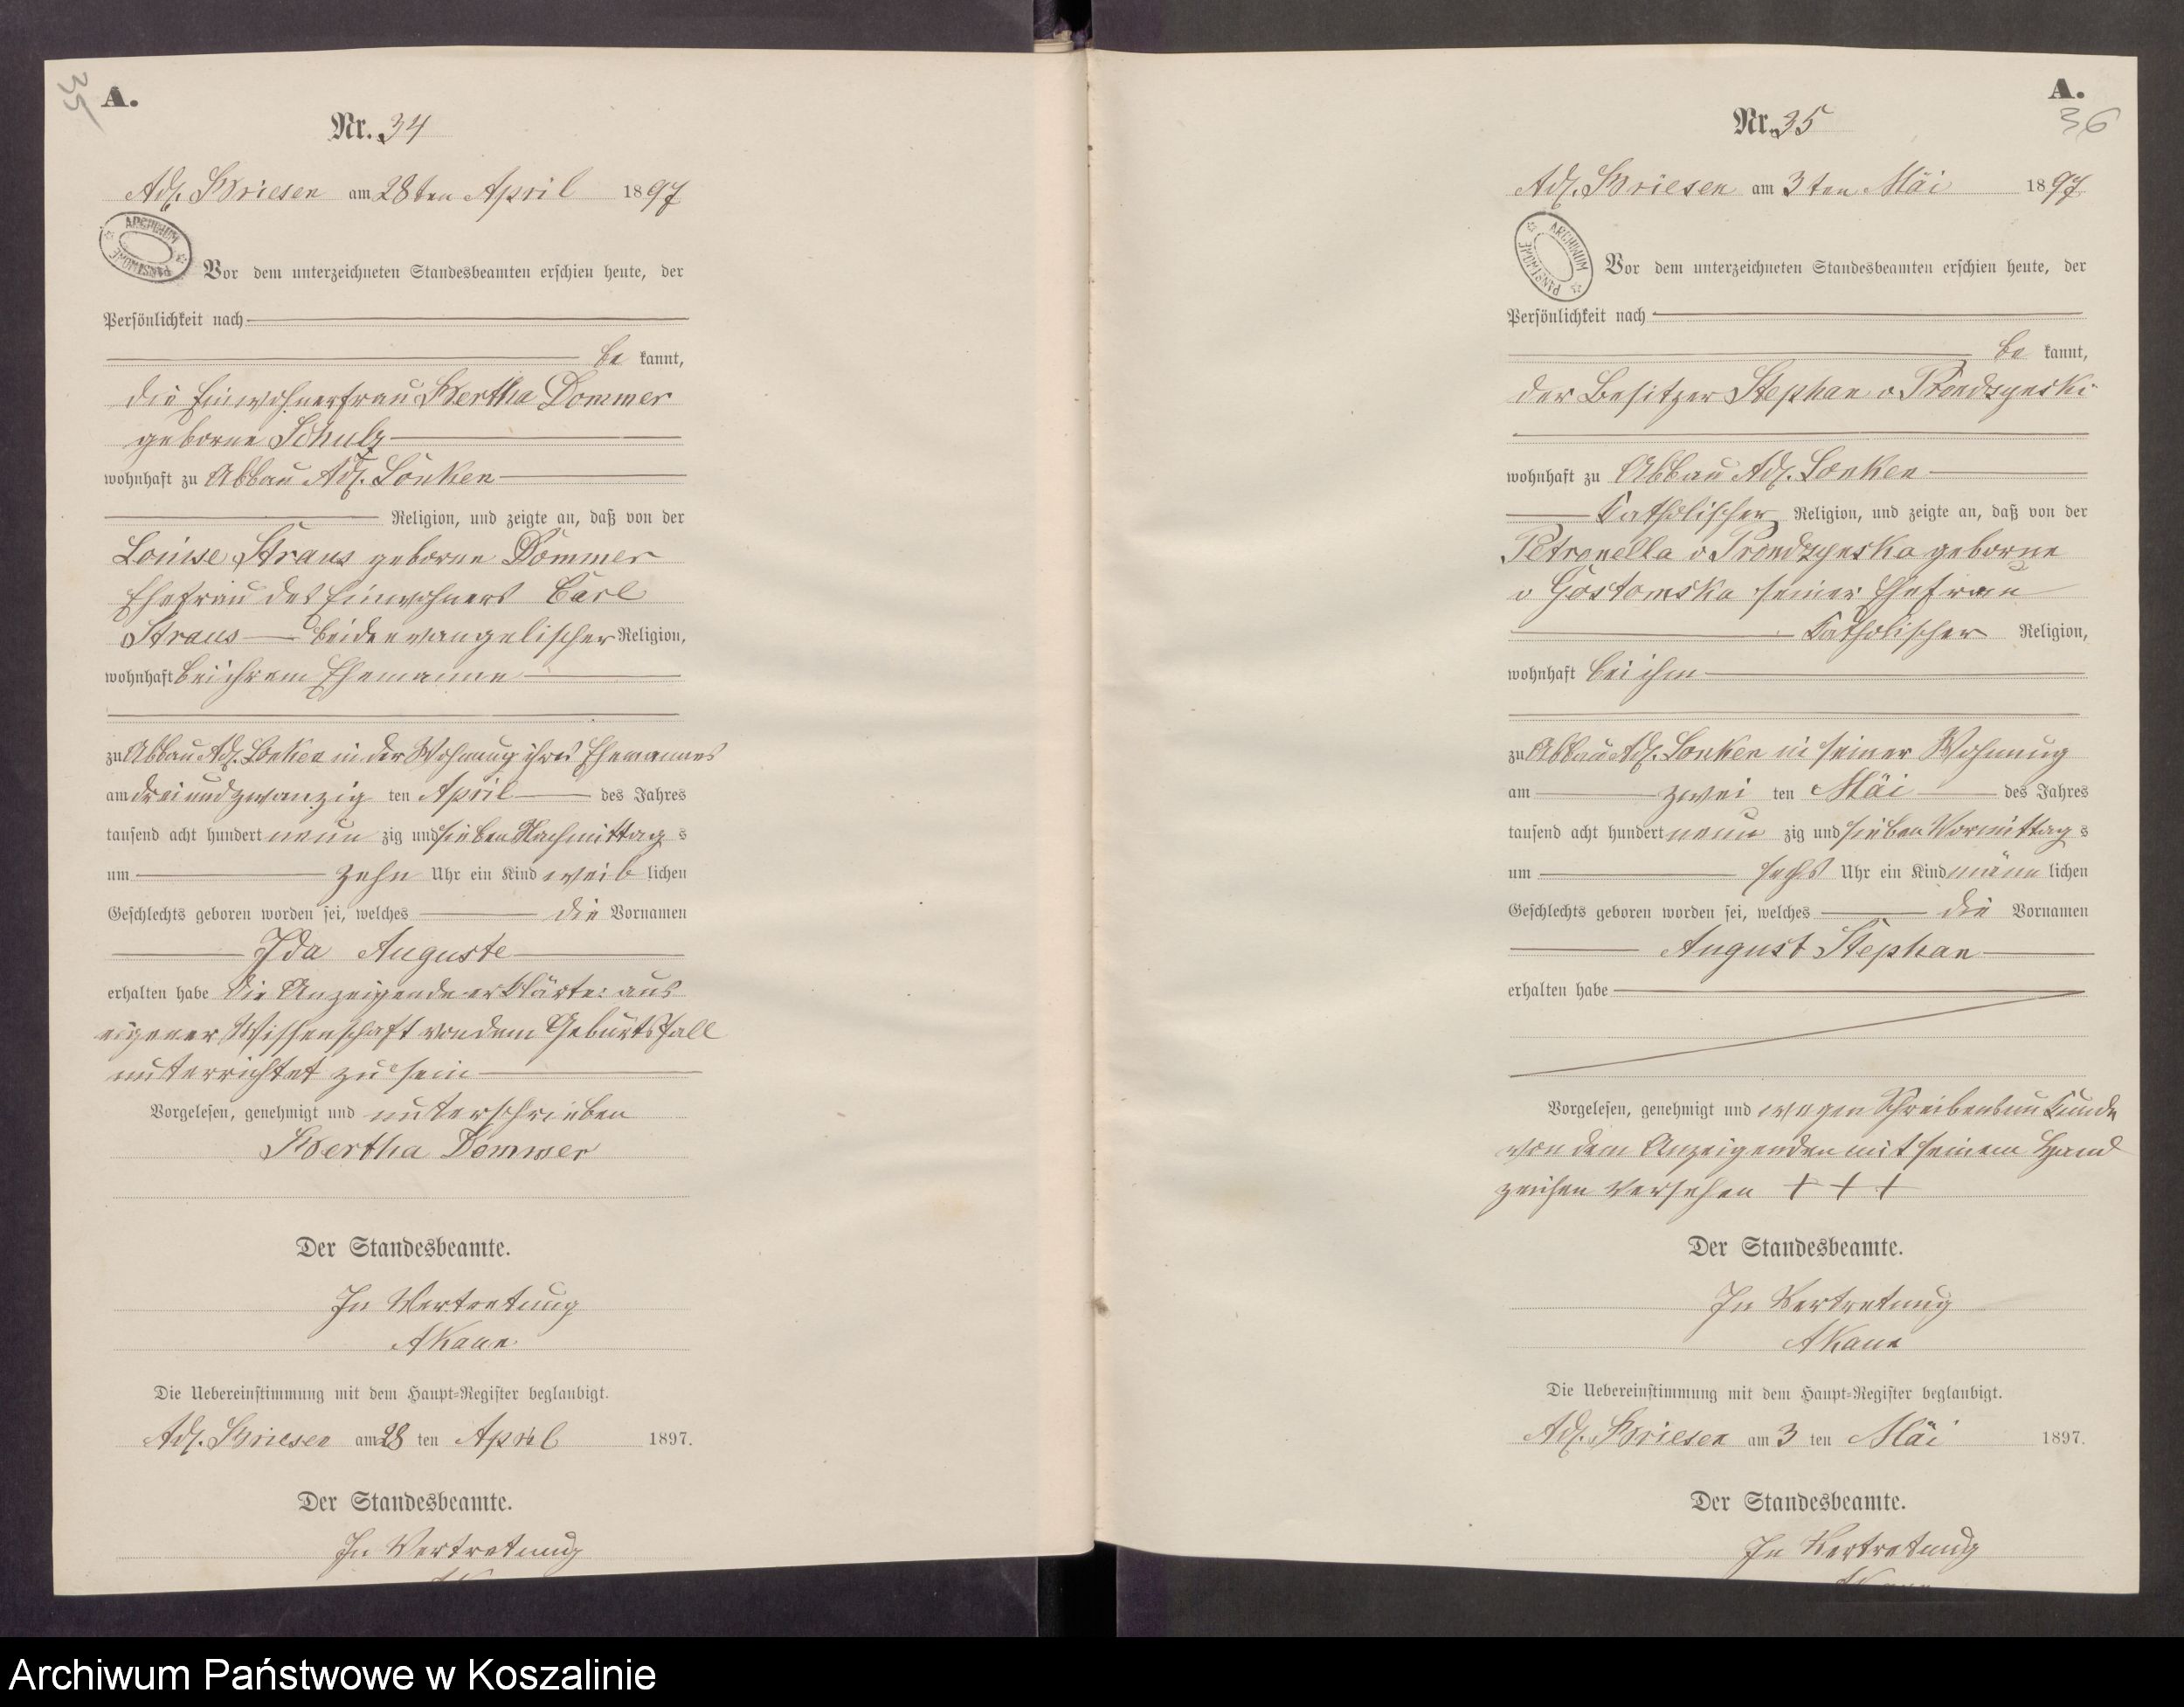 35
A.
Nr. 34
Adl. Briesen am 28ten April 1897
ARCHIWUM PAŃSTWOWE
Vor dem unterzeichneten Standesbeamten erschien heute, der
Persönlichkeit nach
be kannt,
die Einwohnerfrau Bertha Dommer
geborne Schulz
wohnhaft zu Abbau Adl. Lonken
Religion, und zeigte an, daß von der
Louise Straus geborne Dommer
Ehefrau des Einwohners Carl
Straus beide evangelischer Religion,
wohnhaft bei ihrem Ehemanne
zu Abbau Adl. Lonken in der Wohnung ihres Ehemannes
am drei und zwanzig ten April des Jahres
tausend acht hundert neun zig und sieben Nachmittag s
um zehn Uhr ein Kind weib lichen
Geschlechts geboren worden sei, welches die Vornamen
Ida Auguste
erhalten habe Die Anzeigende erklärte: aus
eigener Wissenschaft von dem Geburtsfall
unterrichtet zu sein
Vorgelesen, genehmigt und unterschrieben
Bertha Dommer
Der Standesbeamte.
In Vertretung
A Kaun
Die Uebereinstimmung mit dem Haupt-Register beglaubigt.
Adl. Briesen am 28 ten April 1897.
Der Standesbeamte.
In Vertretung
A.
36
Nr. 35
Adl. Briesen am 3ten Mai 1897
ARCHIWUM PAŃSTWOWE
Vor dem unterzeichneten Standesbeamten erschien heute, der
Persönlichkeit nach
be kannt,
der Besitzer Stephan v Prondzynski
wohnhaft zu Abbau Adl. Lonken
Catholischer Religion, und zeigte an, daß von der
Petronella v Prondzynska geborne
v Gostomska seiner Ehefrau
Catholischer Religion,
wohnhaft bei ihm
zu Abbau Adl. Lonken in seiner Wohnung
am zwei ten Mai des Jahres
tausend acht hundert neun zig und sieben Vormittag s
um sechs Uhr ein Kind männ lichen
Geschlechts geboren worden sei, welches die Vornamen
August Stephan
erhalten habe
Vorgelesen, genehmigt und wegen Schreibensunkunde
von dem Anzeigenden mit seinem Hand
zeichen versehen + + +
Der Standesbeamte.
In Vertretung
A Kaun
Die Uebereinstimmung mit dem Haupt-Register beglaubigt.
Adl. Briesen am 3 ten Mai 1897.
Der Standesbeamte.
In Vertretung
Archiwum Państwowe w Koszalinie